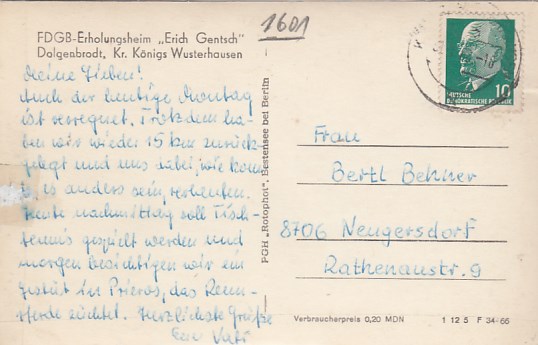 1601
FDGB-Erholungsheim „Erich Gentsch"
Dolgenbrodt, Kr. Königs Wusterhausen
Meine Lieben!
Auch der heutige Montag
ist verregnet. Trotzdem ha-
ben wir wieder 15 km zurück-
gelegt und uns dabei, wie konn-
te es anders sein, verlaufen.
Heute nachmittag soll Tisch-
tennis gespielt werden und
morgen besichtigen wir ein
Gestüt in Prieros, das Renn-
pferde züchtet. Herzlichste Grüße
Euer Vati
PGH „Rotophot", Bestensee bei Berlin
10
DEUTSCHE
DEMOKRATISCHE REPUBLIK
Frau
Bertl Behner
8706 Neugersdorf
Rathenaustr. 9
Verbraucherpreis 0,20 MDN
1 12 5 F 34-66